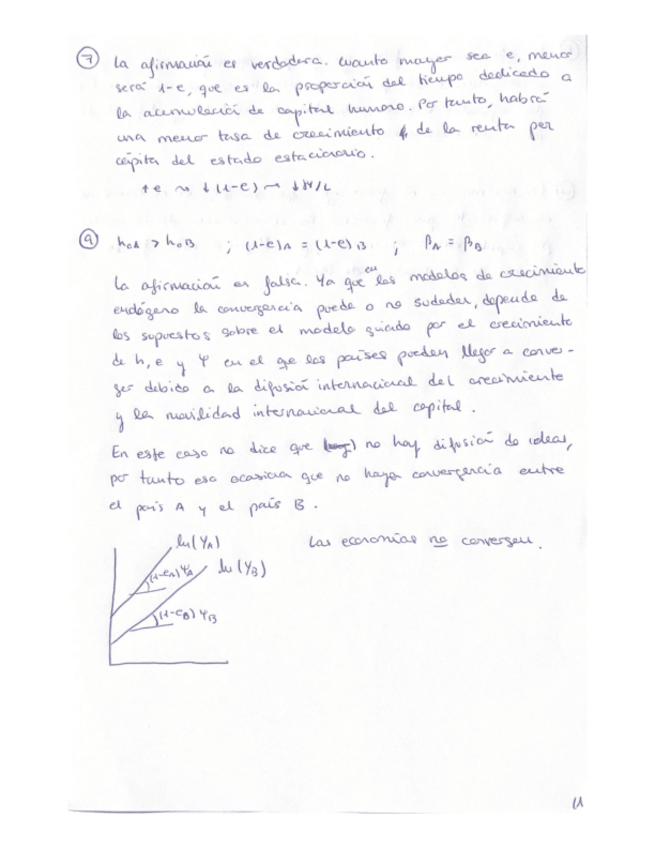 7 La afirmación es verdadera. Cuanto mayor sea e, menor
será 1-e, que es la proporción del tiempo dedicado a
la acumulación de capital humano. Por tanto, habrá
una menor tasa de crecimiento de la renta per
cápita del estado estacionario.
↑e ↓(1-e) → ↓
9 h0A > h0B ; (1-e)A = (1-e)B ; βA = βB
La afirmación es falsa. Ya que en los modelos de crecimiento
endógeno la convergencia puede o no suceder, depende de
los supuestos sobre el modelo guiado por el crecimiento
de h, e y φ en el que los países pueden llegar a conver-
ger debido a la difusión internacional del crecimiento
y la movilidad internacional del capital.
En este caso no dice que no hay difusión de ideas,
por tanto eso ocasiona que no haya convergencia entre
el país A y el país B.
ln(YA) Las economías no convergen.
(1-eA)φA ln(YB)
(1-eB)φB